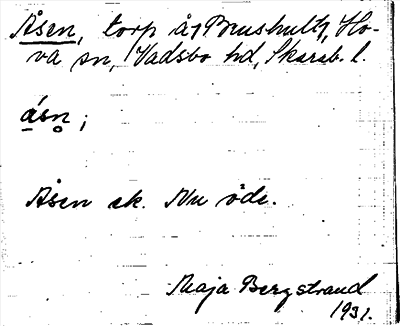 Åsen, torp å Brushult, Ho-
va sn, Vadsbo hd, Skarab. l.
åsn;
Åsen ek. Nu öde.
Maja Bergstrand
1931.